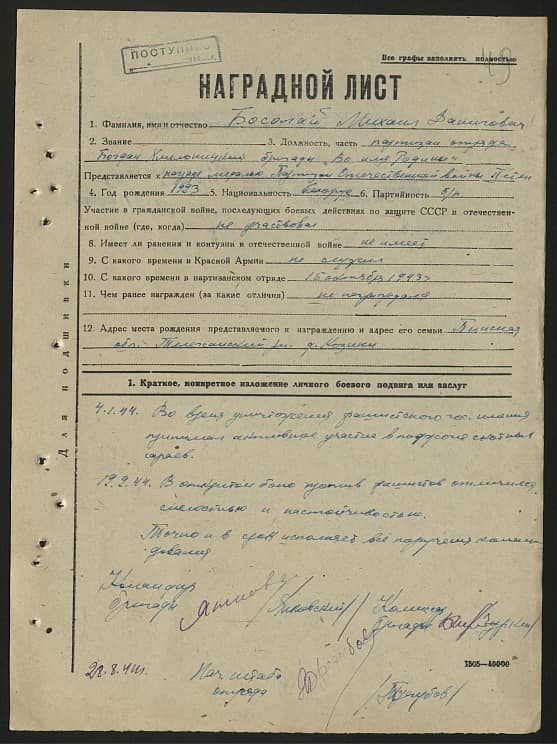 ПОСТУПИЛО
49
Все графы заполнять полностью
НАГРАДНОЙ ЛИСТ
1. Фамилия, имя и отчество Босолай Михаил Данилович
2. Звание 3. Должность, часть партизан отряда
Богдан Хмельницкий бригады "Во имя Родины"
Представляется к награде медалью Партизан Отечественной войны II степ.
4. Год рождения 1923 5. Национальность белорус 6. Партийность б/п
Участие в гражданской войне, последующих боевых действиях по защите СССР и отечествен-
ной войне (где, когда) не участвовал
8. Имеет ли ранения и контузии в отечественной войне не имеет
9. С какого времени в Красной Армии не служил
10. С какого времени в партизанском отряде 15 октября 1943г
11. Чем ранее награжден (за какие отличия) не награждался
12. Адрес места рождения представляемого к награждению и адрес его семьи Пинская
обл. Телеханский д.
Для подшивки
1. Краткое, конкретное изложение личного боевого подвига или заслуг
4.1.44. Во время уничтожения фашистского гос. имения
принимал активное участие в
сараев.
В открытом бою против фашистов отличился
смелостью и настойчивостью.
Точно и в срок исполняет все поручения коман-
дования
Командир
бригады /Яковский/
Комиссар
бригады
Нач. штаба
отряда
1305—40000